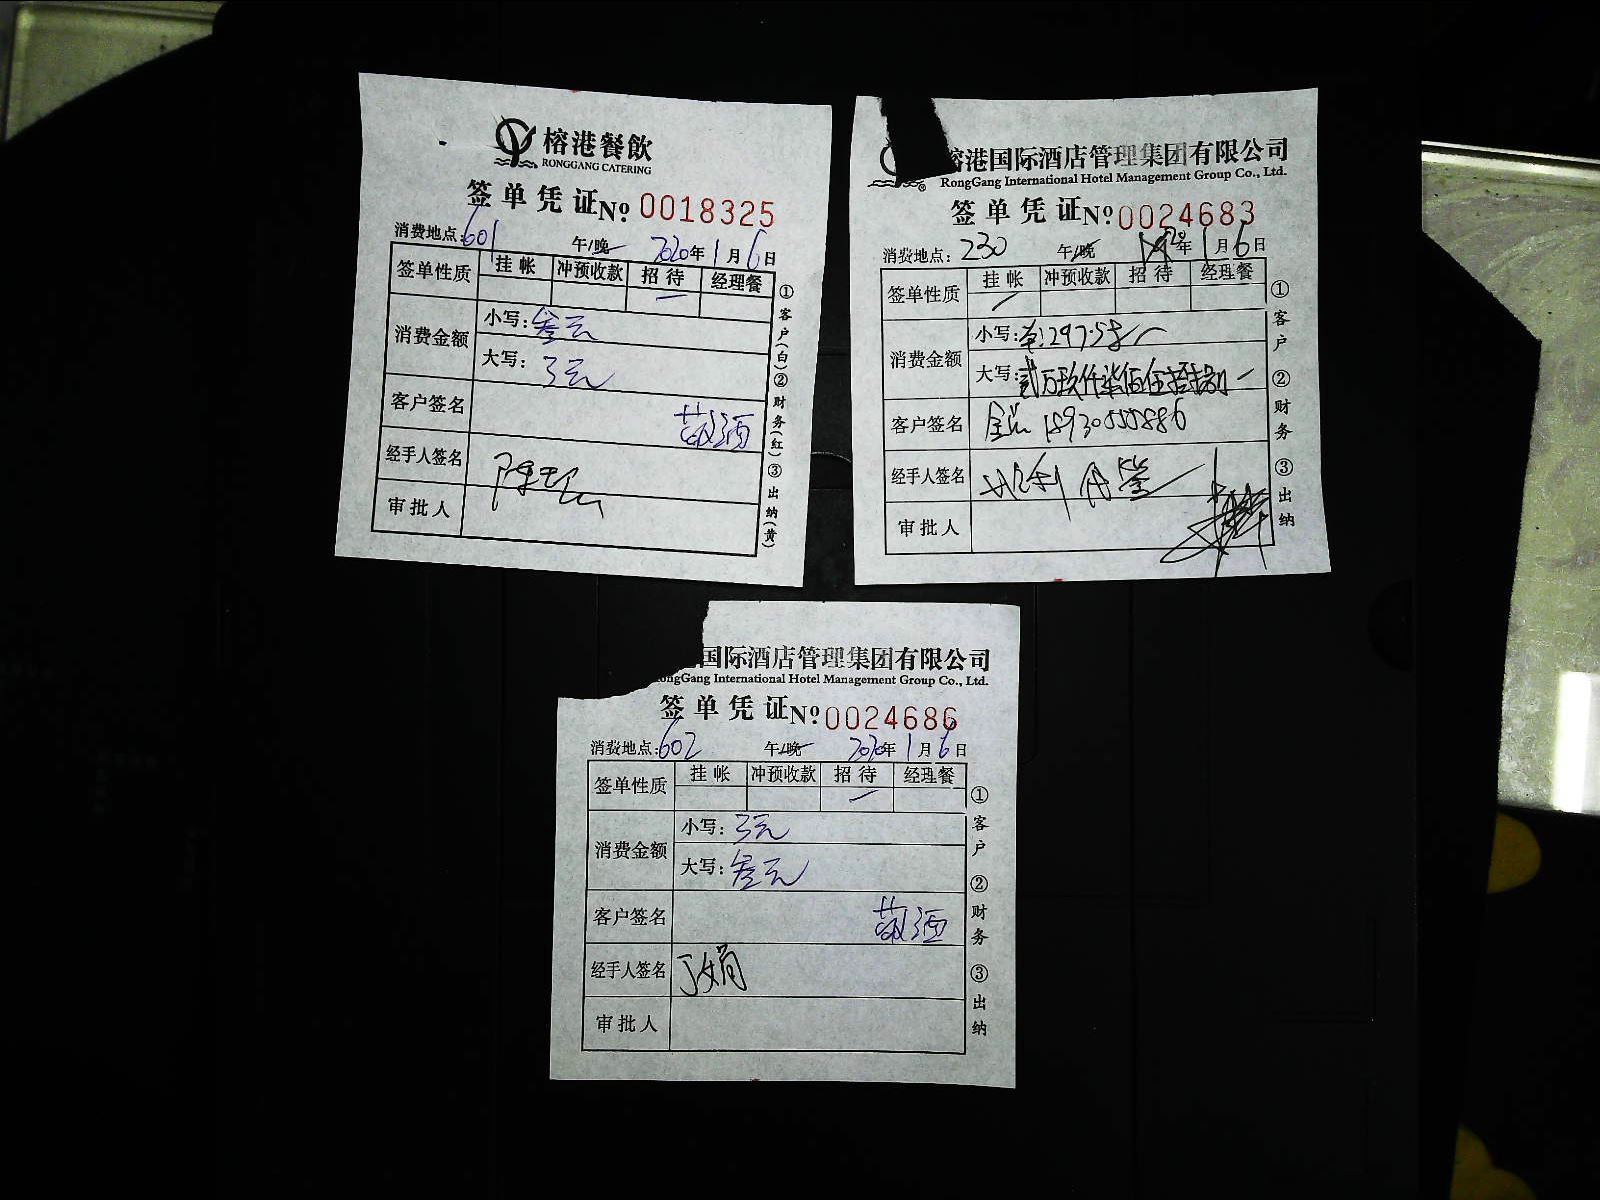 榕港餐飲
RONGGANG CATERING
签单凭证No 0018325
消费地点:601 午/晚 2020年1月6日
签单性质 挂帐 冲预收款 招待 经理餐
消费金额 小写:叁元
大写:3元
客户签名 敬酒
经手人签名
审批人
①客户(白)②财务(红)③出纳(黄)
榕港国际酒店管理集团有限公司
RongGang International Hotel Management Group Co., Ltd.
签单凭证No 0024683
消费地点:230 午/晚 年1月6日
签单性质 挂帐 冲预收款 招待 经理餐
消费金额 小写:
大写:贰万玖仟柒佰伍拾捌
客户签名 18930555886
经手人签名
审批人
①客户 ②财务 ③出纳
国际酒店管理集团有限公司
ongGang International Hotel Management Group Co., Ltd.
签单凭证No 0024686
消费地点:602 午/晚 2020年1月6日
签单性质 挂帐 冲预收款 招待 经理餐
消费金额 小写:3元
大写:叁元
客户签名 敬酒
经手人签名 丁娟
审批人
①客户 ②财务 ③出纳